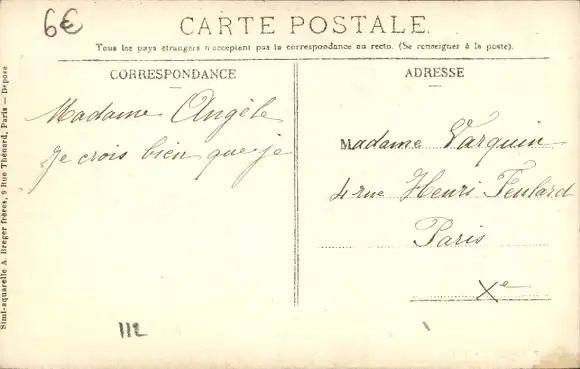 6€
CARTE POSTALE.
Tous les pays étrangers n'acceptent pas la correspondance au recto. (Se renseigner à la poste).
CORRESPONDANCE
ADRESSE
Madame Angèle
Je crois bien que je
Madame Varquin
4 rue Henri Feulard
Paris
Xe
112
Simi-aquarelle A. Breger frères, 9 Rue Thénard, Paris — Déposé